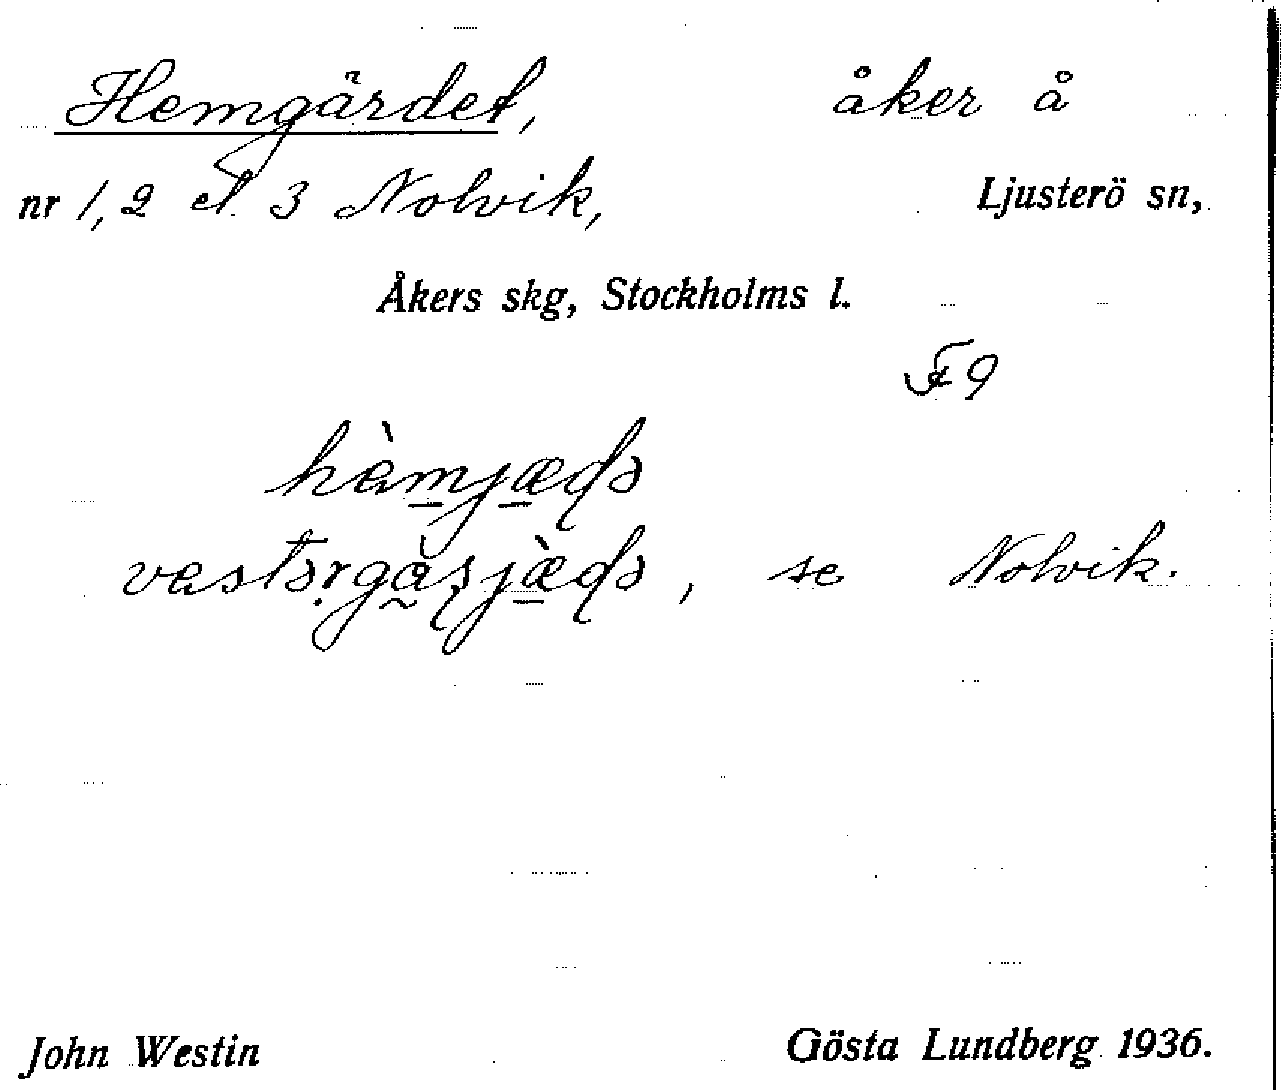 Hemgärdet, åker å
nr 1, 2 el. 3 Nolvik, Ljusterö sn,
Åkers skg, Stockholms l.
F9
, se Nolvik.
John Westin Gösta Lundberg 1936.